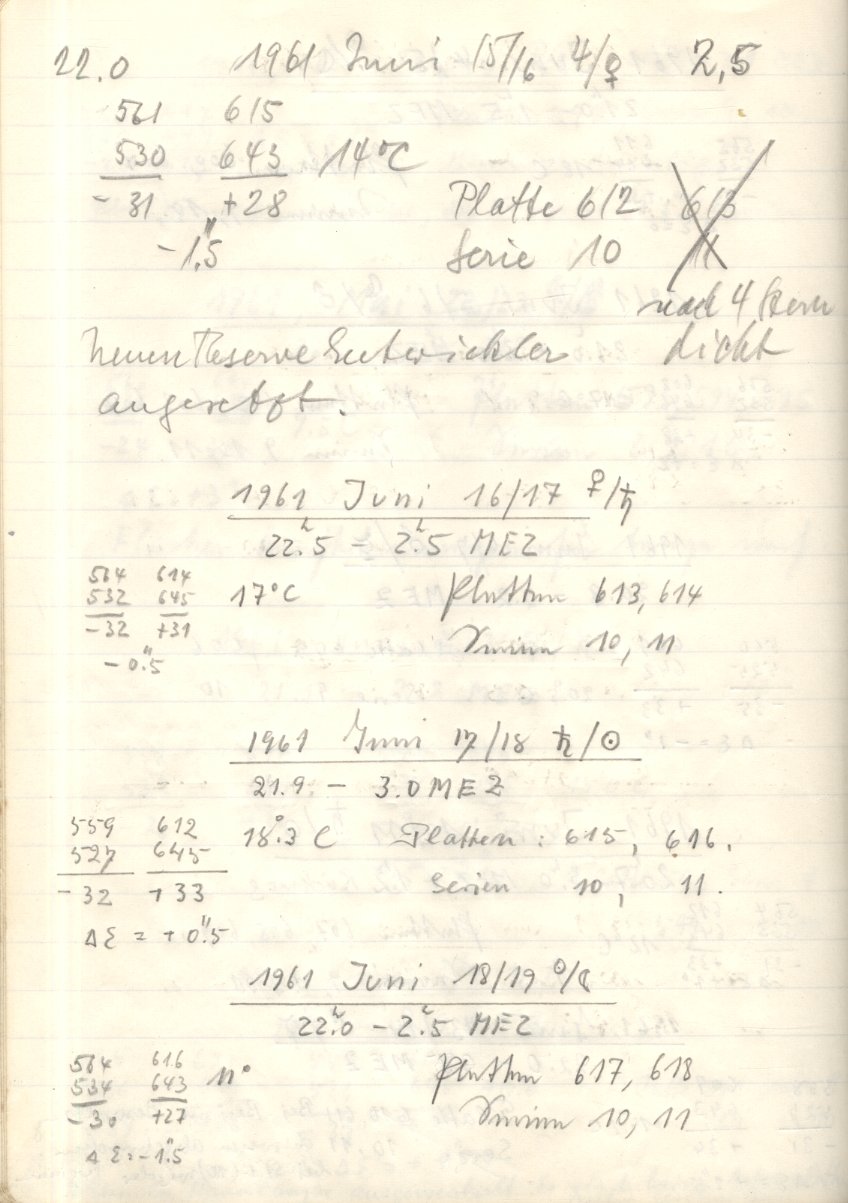 22.0 1961 Juni 15/16 4/♀ 2,5
561 615
530 643 14°C
- 31 +28 Platte 612 613
- 1".5 Serie 10 11
nach 4 Stern
Neuen Reserve Entwickler dicht
angesetzt.
1961 Juni 16/17 ♀/♄
22ʰ.5 - 2ʰ.5 MEZ
564 614
532 645 17°C Platten 613, 614
-32 +31 Serien 10, 11
- 0".5
1961 Juni 17/18 ♄/☉
21.9 - 3.0 MEZ
559 612 18°.3 C Platten : 615, 616.
527 645
- 32 + 33 Serien 10, 11.
ΔΣ = + 0".5
1961 Juni 18/19 ☉/☾
22ʰ.0 - 2ʰ.5 MEZ
564 616 Platten 617, 618
534 643 11°
-30 +27 Serien 10, 11
ΔΣ = -1".5